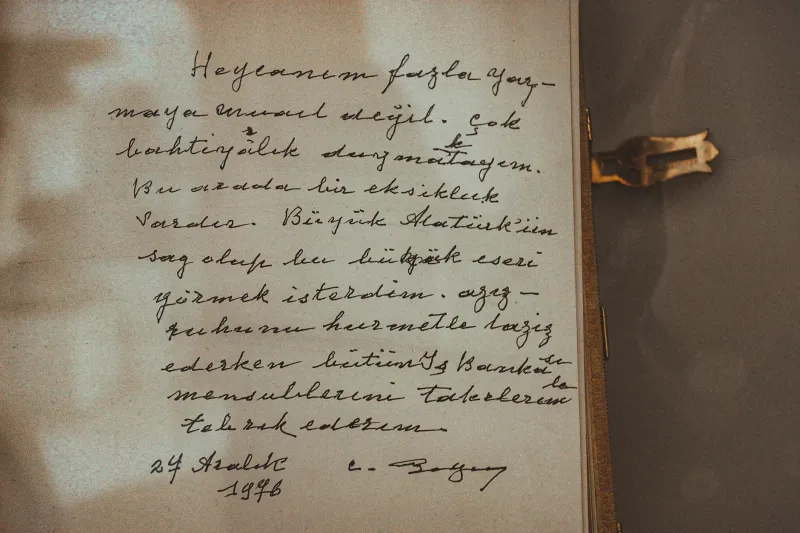 Heycanım fazla yaz-
maya müail değil. Çok
bahtiyarlık duymaktayım.
Bu arada bir eksikluk
vardır. Büyük Atatürk'ün
sag olup bu büyük eseri
görmek isterdim. aziz-
ruhunu hurmetle taziz
ederken bütün İş Bankası
mensublerini takrlerimle
tebrik ederim.
24 Aralık C. Bayar
1976